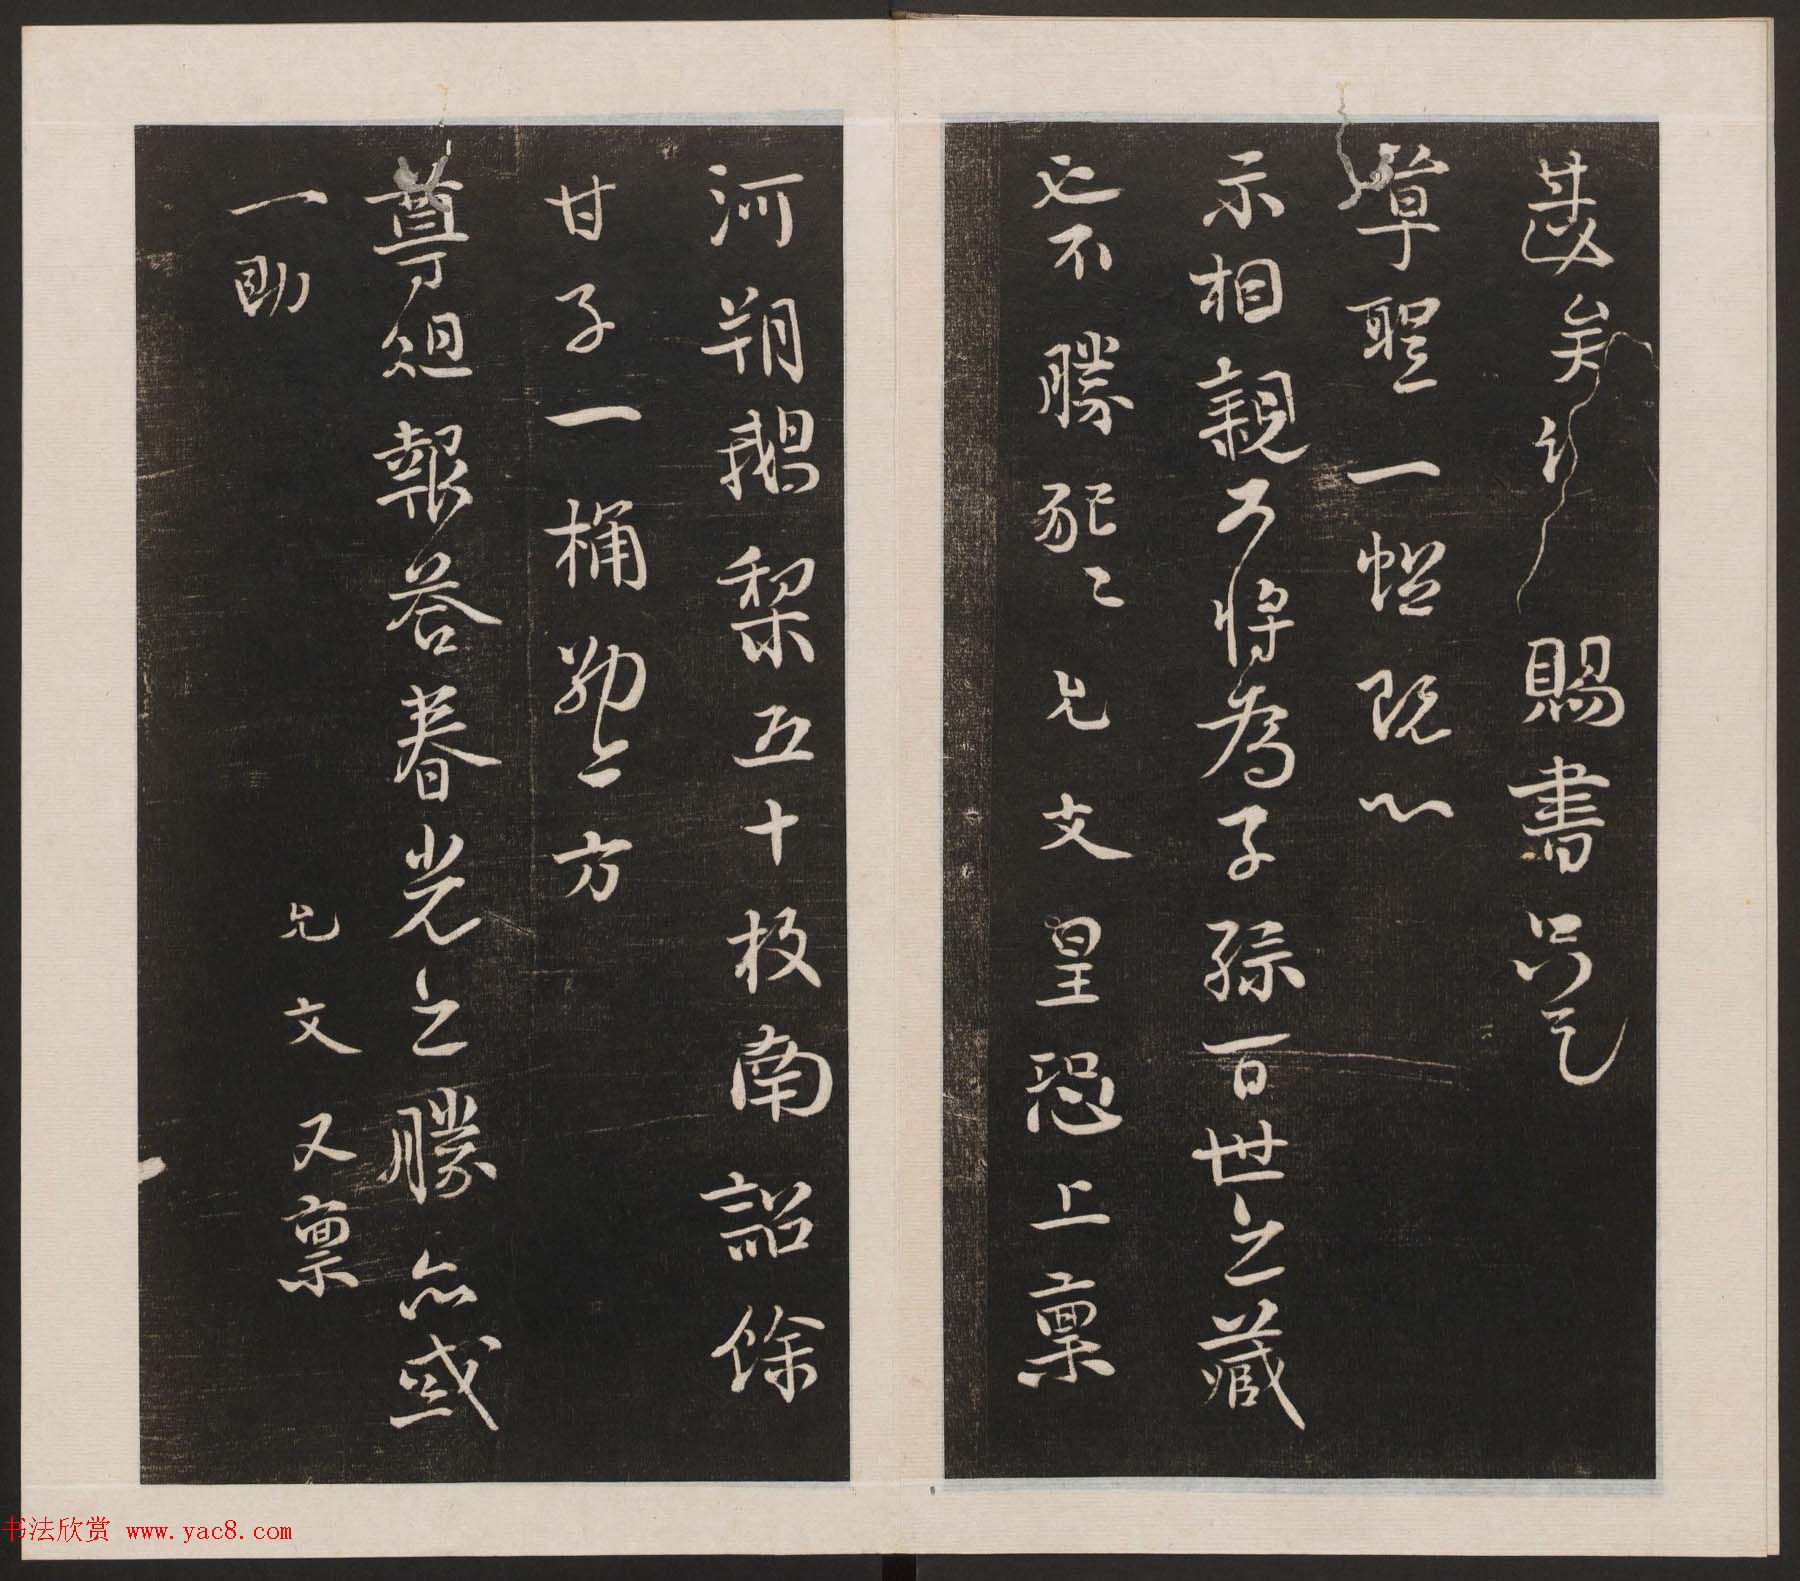 矣行賜書只乞
草聖一幅既以
示相親又將為子孫百世之藏
也不勝允文皇恐上稟
河朔鵝梨五十枚南詔餘
甘子一桶方
尊俎報答春光之勝亦或
一助
允文又稟
书法欣赏 www.yac8.com